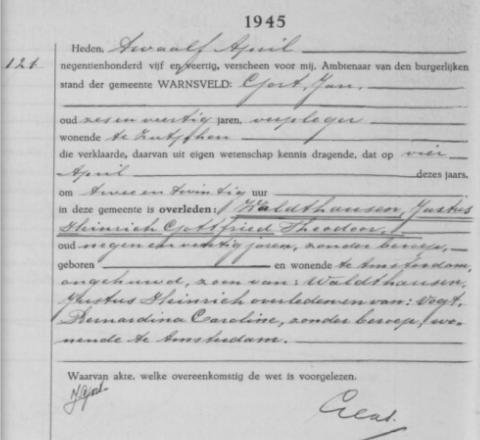 1945
Heden, twaalf April
121.
negentienhonderd vijf en veertig, verscheen voor mij, Ambtenaar van den burgerlijken
stand der gemeente WARNSVELD: Gort, Jan,
oud zes en veertig jaren, verpleger
wonende te Zutphen
die verklaarde, daarvan uit eigen wetenschap kennis dragende, dat op vier
April dezes jaars,
om twee en twintig uur
in deze gemeente is overleden: Waldthausen, Justus
Heinrich Gottfried Theodoor,
oud negen en veertig jaren, zonder beroep,
geboren en wonende te Amsterdam,
ongehuwd, zoon van: Waldthausen,
Justus Heinrich overleden en van: Vogt,
Bernardina Caroline, zonder beroep, wo-
nende te Amsterdam.
Waarvan akte, welke overeenkomstig de wet is voorgelezen.
JGort.